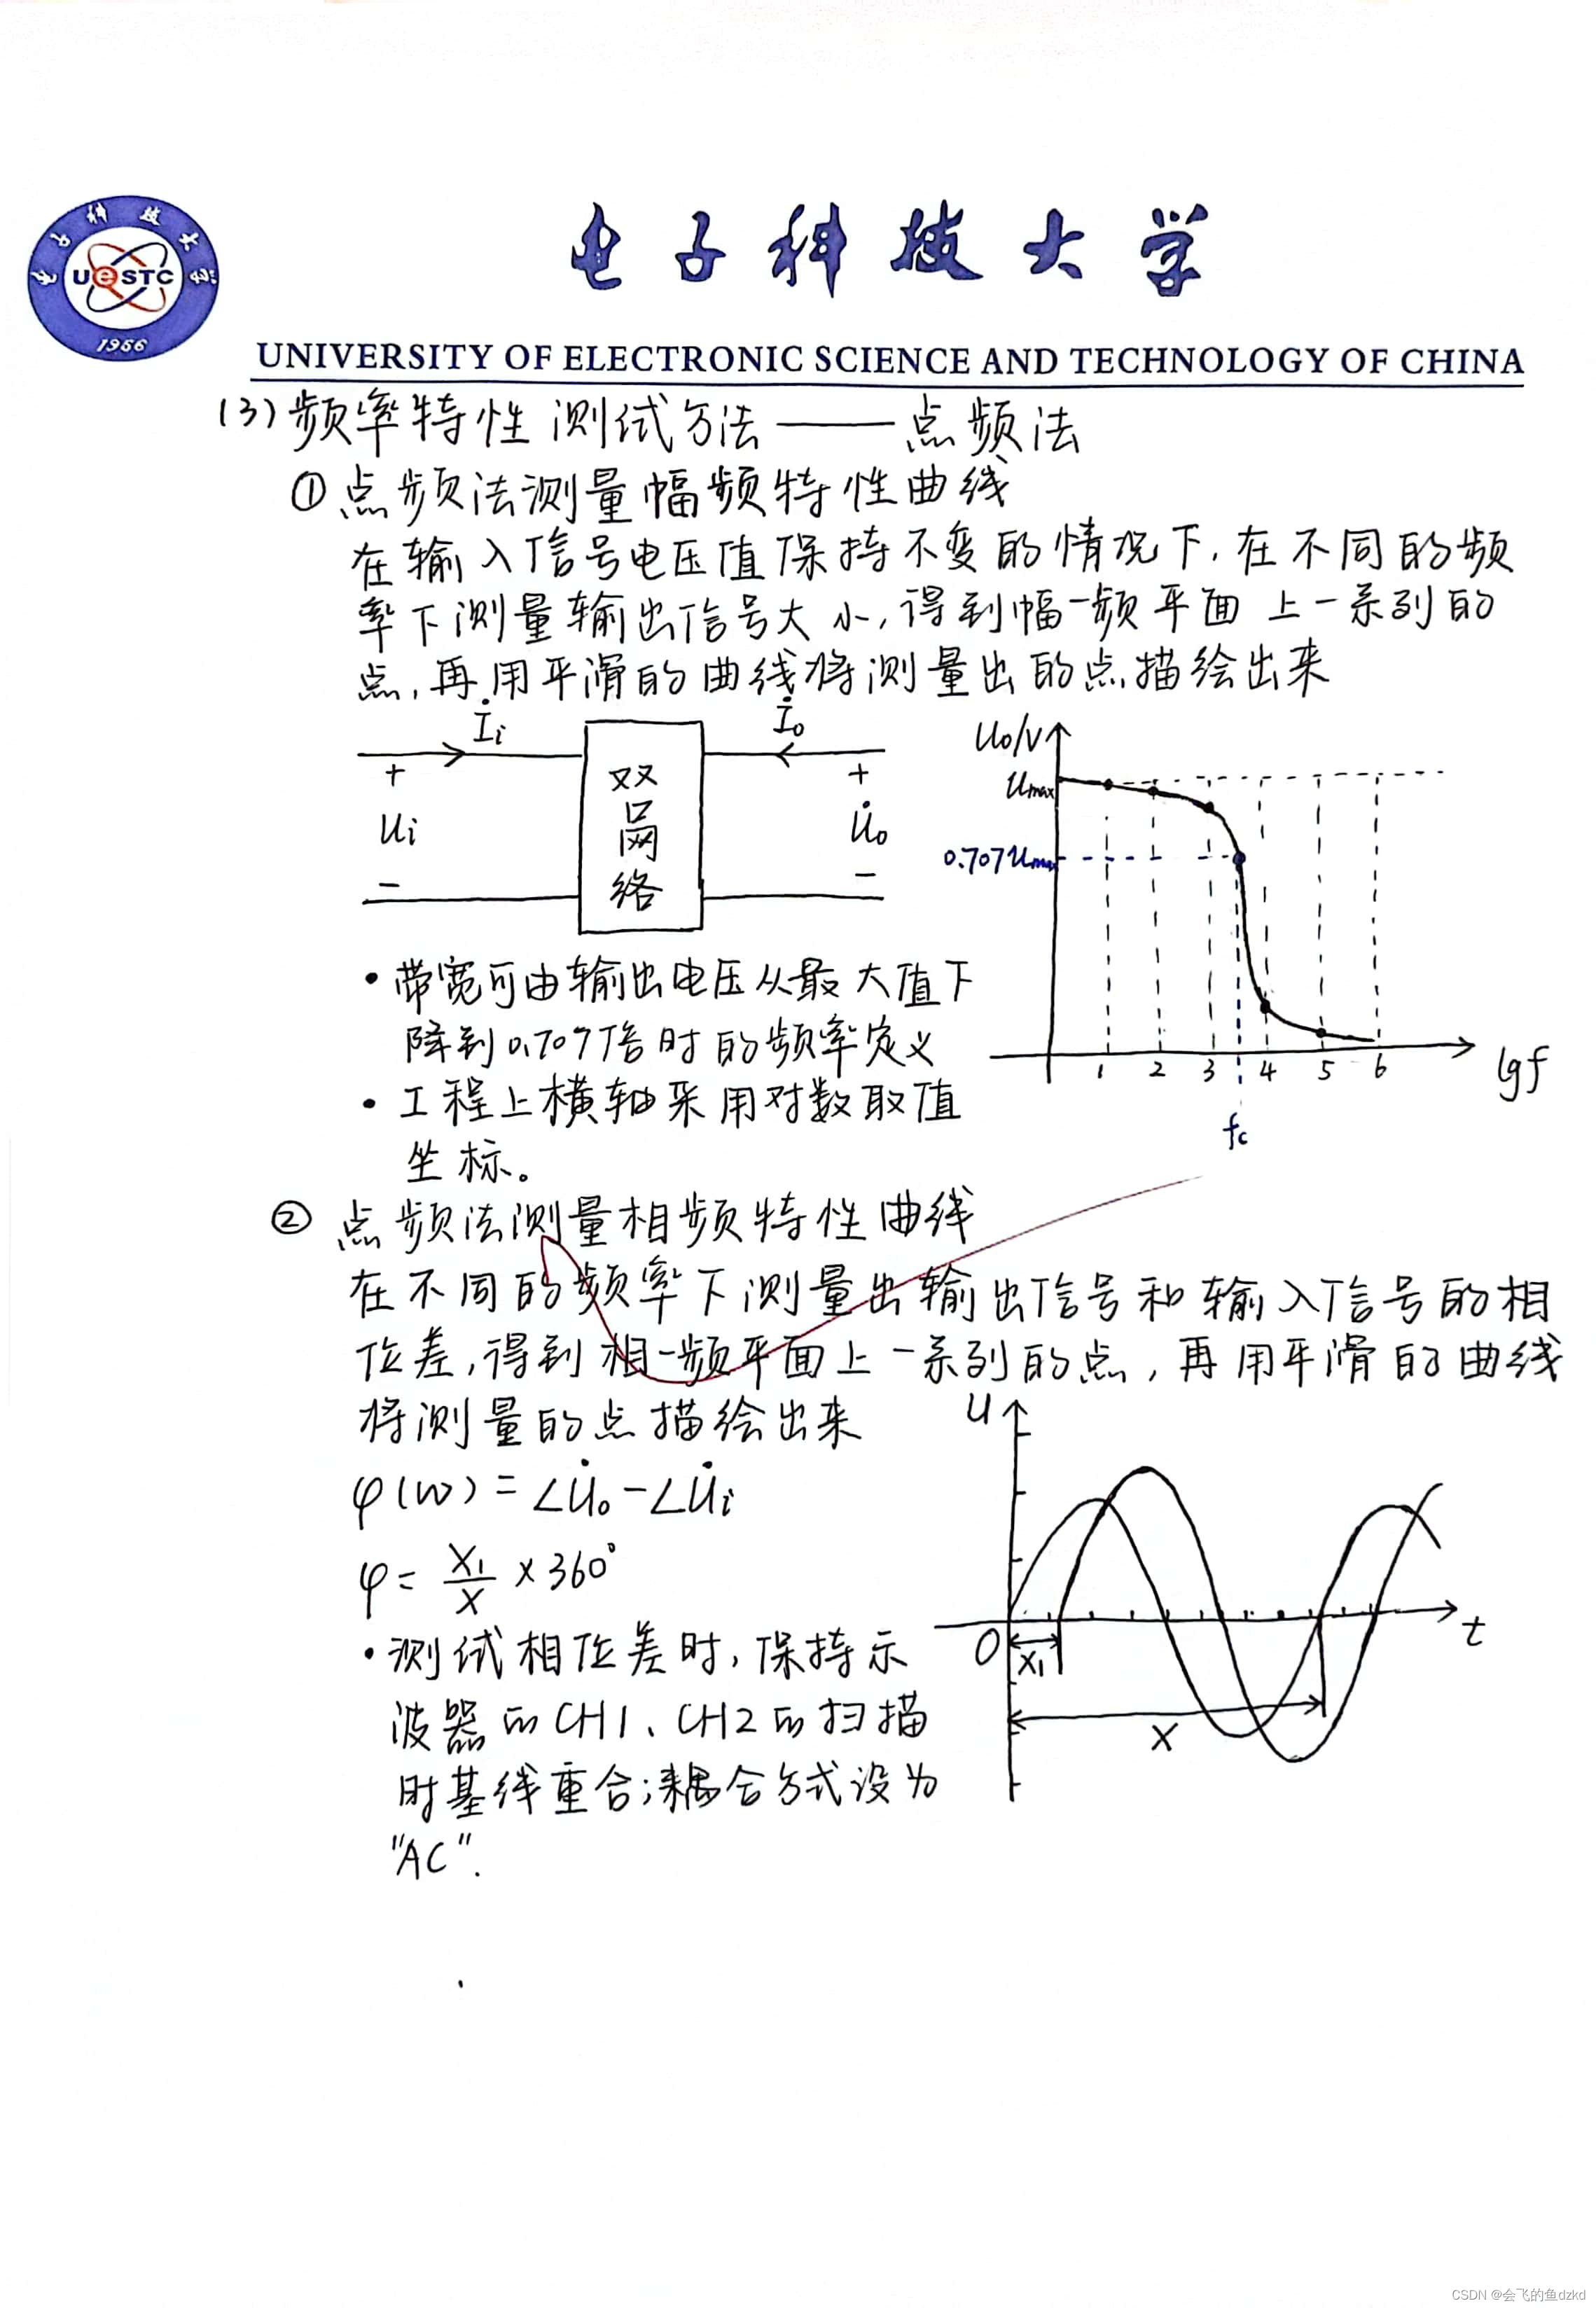 电子科技大学
UESTC
1956
电子科技大学
UNIVERSITY OF ELECTRONIC SCIENCE AND TECHNOLOGY OF CHINA
(3) 频率特性测试方法——点频法
① 点频法测量幅频特性曲线
在输入信号电压值保持不变的情况下,在不同的频
率下测量输出信号大小,得到幅-频平面上一系列的
点,再用平滑的曲线将测量出的点描绘出来
İi
İo
+
Ui
-
双口网络
+
U̇o
-
Uo/V
Umax
0.707Umax
1 2 3 4 5 6
lgf
fc
• 带宽可由输出电压从最大值下
降到0.707倍时的频率定义
• 工程上横轴采用对数取值
坐标。
② 点频法测量相频特性曲线
在不同的频率下测量出输出信号和输入信号的相
位差,得到相-频平面上一系列的点,再用平滑的曲线
将测量的点描绘出来
φ(w) = ∠U̇o - ∠U̇i
φ = X₁/X × 360°
• 测试相位差时,保持示
波器的CH1、CH2的扫描
时基线重合;耦合方式设为
"AC".
U
O
X₁
X
t
CSDN @会飞的鱼dzkd